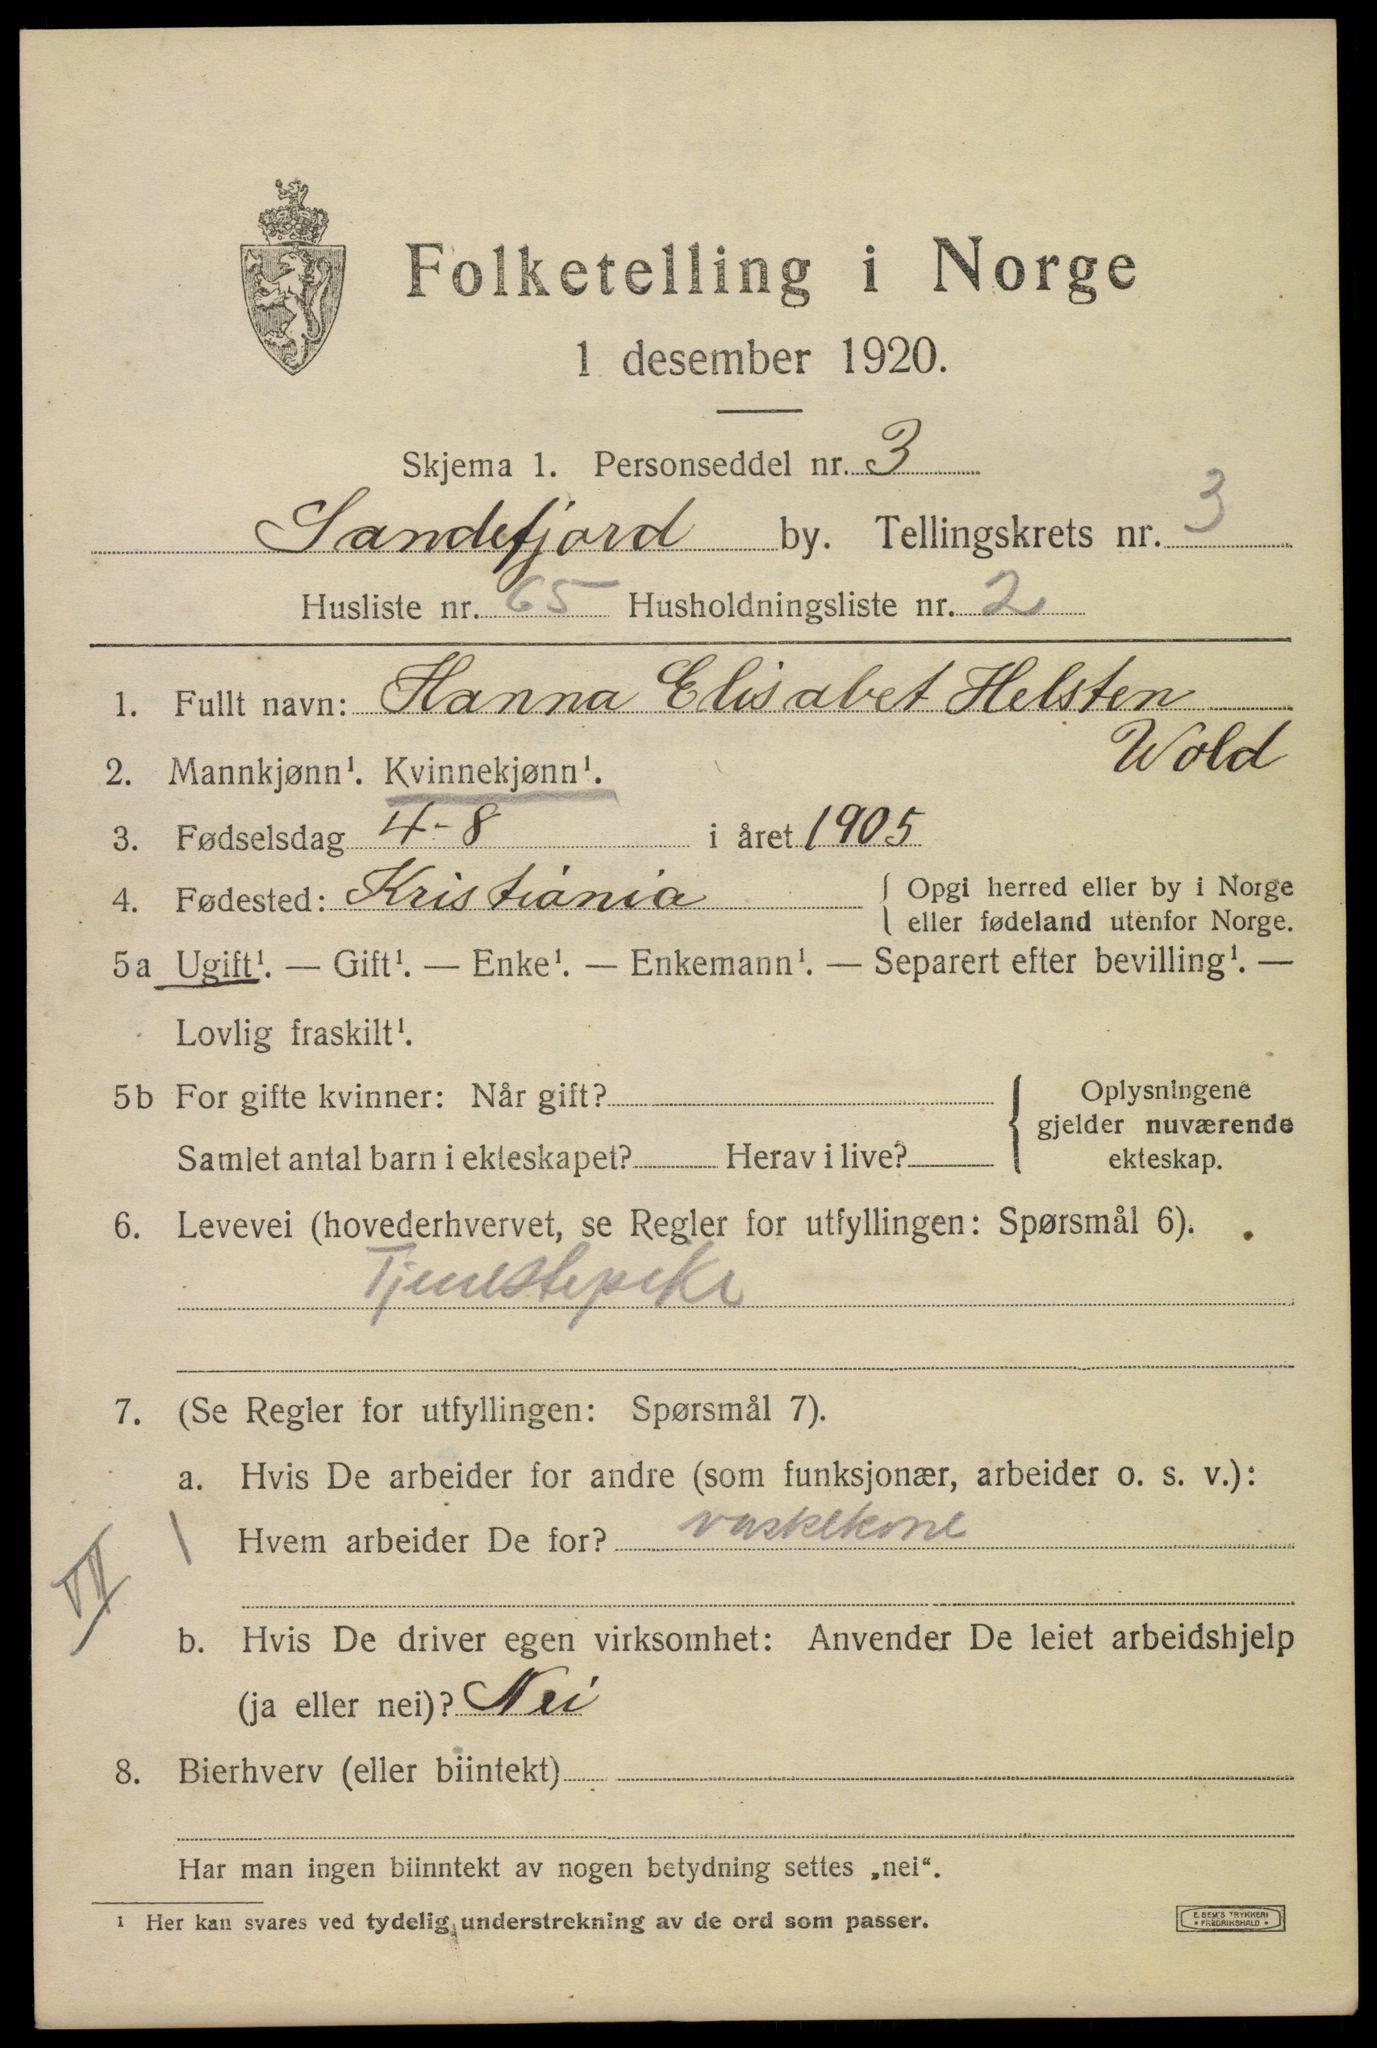 Folketelling i Norge
1 desember 1920.
Skjema 1. Personseddel nr. 3
Sandefjord by. Tellingskrets nr. 3
Husliste nr. 65 Husholdningsliste nr. 2
1. Fullt navn: Hanna Elisabet Helsten
Wold
2. Mannkjønn¹. Kvinnekjønn¹.
3. Fødselsdag 4-8 i året 1905
4. Fødested: Kristiania { Opgi herred eller by i Norge
eller fødeland utenfor Norge.
5a Ugift¹. — Gift¹. — Enke¹. — Enkemann¹. — Separert efter bevilling¹. —
Lovlig fraskilt¹.
5b For gifte kvinner: Når gift?
Samlet antal barn i ekteskapet? Herav i live?
Oplysningene
gjelder nuværende
ekteskap.
6. Levevei (hovederhvervet, se Regler for utfyllingen: Spørsmål 6).
Tjenestepike
7. (Se Regler for utfyllingen: Spørsmål 7).
a. Hvis De arbeider for andre (som funksjonær, arbeider o. s. v.):
Hvem arbeider De for? vaskekone
VII 1
b. Hvis De driver egen virksomhet: Anvender De leiet arbeidshjelp
(ja eller nei)? Nei
8. Bierhverv (eller biintekt)
Har man ingen biinntekt av nogen betydning settes „nei“.
¹ Her kan svares ved tydelig understrekning av de ord som passer.
E. SEM'S TRYKKERI
• FREDRIKSHALD •